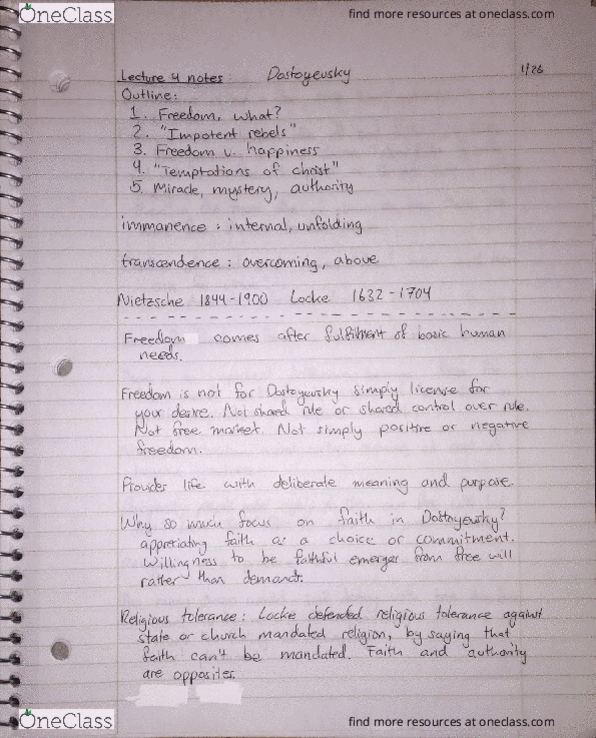 OneClass
find more resources at oneclass.com
Lecture 4 notes: Dostoyevsky 1/26
Outline:
1. Freedom, what?
2. "Impotent rebels"
3. Freedom v. happiness
4. "Temptations of christ"
5. Miracle, mystery, authority
immanence: internal, unfolding
transcendence: overcoming, above
Nietzsche 1844-1900 Locke 1632-1704
Freedom comes after fulfilment of basic human
needs.
Freedom is not for Dostoyevsky simply license for
your desire. Not shared rule or shared control over rule.
Not free market. Not simply positive or negative
freedom.
Provides life with deliberate meaning and purpose.
Why so much focus on faith in Dostoyevsky?
appreciating faith as a choice or commitment.
Willingness to be faithful emerges from free will
rather than demands.
Religious tolerance: Locke defended religious tolerance against
state or church mandated religion, by saying that
faith can't be mandated. Faith and authority
are opposites.
OneClass
find more resources at oneclass.com